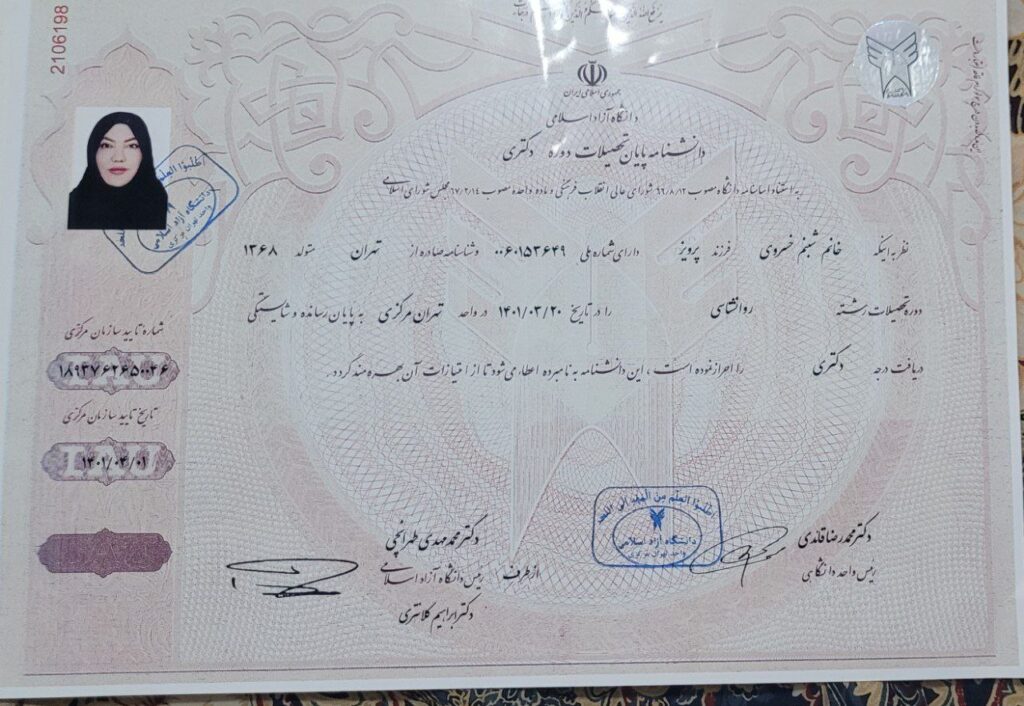 2106198
جمهوری اسلامی ایران
دانشگاه آزاد اسلامی
دانشنامه پایان تحصیلات دوره دکتری
به استناد اساسنامه دانشگاه مصوب ۶۶/۸/۱۲ شورای عالی انقلاب فرهنگی و ماده واحده مصوب ۶۷/۲/۱۴ مجلس شورای اسلامی
نظر به اینکه خانم شبنم خسروی فرزند پرویز دارای شماره ملی ۰۰۶۰۱۵۳۶۴۹ و شناسنامه صادره از تهران متولد ۱۳۶۸
دوره تحصیلات رشته روانشناسی را در تاریخ ۱۴۰۱/۰۳/۲۰ در واحد تهران مرکزی به پایان رسانده و شایستگی
دریافت درجه دکتری را احراز نموده است ، این دانشنامه به نامبرده اعطاء می شود تا از امتیازات آن بهره مند گردد.
شماره تایید سازمان مرکزی
۱۸۹۳۷۶۲۶۵۰۰۴۶
تاریخ تایید سازمان مرکزی
۱۴۰۱/۰۴/۰۱
اطلبوا العلم من المهد الی اللحد
دانشگاه آزاد اسلامی
واحد تهران مرکزی
اطلبوا العلم من المهد الی اللحد
دانشگاه آزاد اسلامی
واحد تهران مرکزی
دکتر محمدرضا قائدی
رئیس واحد دانشگاهی
دکتر محمدمهدی طهرانچی
از طرف رئیس دانشگاه آزاد اسلامی
دکتر ابراهیم کلانتری